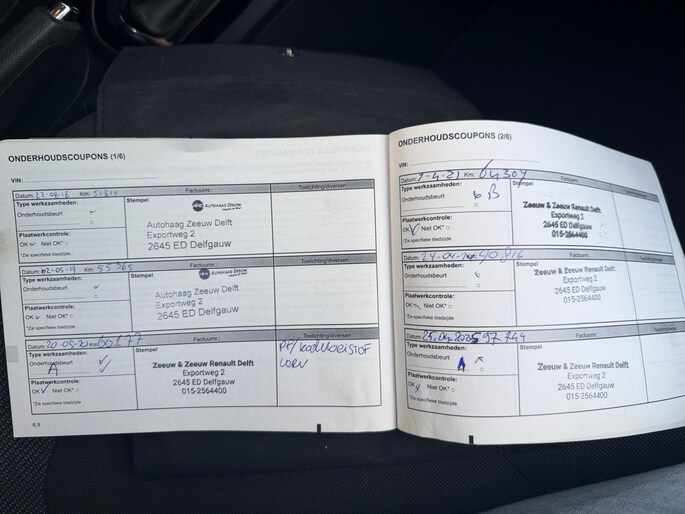 ONDERHOUDSCOUPONS (1/6)
VIN:
Datum: Km: Factuurnr.: Toelichting/diversen
Type werkzaamheden:
Onderhoudsbeurt
Plaatwerkcontrole:
OK Niet OK*
*Zie specifieke bladzijde
Stempel
AUTOHAAG ZEEUW
Autohaag Zeeuw Delft
Exportweg 2
2645 ED Delfgauw
Datum: 02-05-19 Km: 55365 Factuurnr.: Toelichting/diversen
Type werkzaamheden:
Onderhoudsbeurt
Plaatwerkcontrole:
OK Niet OK*
*Zie specifieke bladzijde
Stempel
AUTOHAAG ZEEUW
Autohaag Zeeuw Delft
Exportweg 2
2645 ED Delfgauw
Datum: Km: 60177 Factuurnr.: Toelichting/diversen
Type werkzaamheden:
Onderhoudsbeurt
A
Plaatwerkcontrole:
OK Niet OK*
*Zie specifieke bladzijde
Stempel
Zeeuw & Zeeuw Renault Delft
Exportweg 2
2645 ED Delfgauw
015-2564400
PF/ koelvloeistof
6.8
ONDERHOUDSCOUPONS (2/6)
VIN:
Datum: Km: 64304 Factuurnr.:
Type werkzaamheden:
Onderhoudsbeurt
B
Plaatwerkcontrole:
OK Niet OK*
*Zie specifieke bladzijde
Stempel
Zeeuw & Zeeuw Renault Delft
Exportweg 2
2645 ED Delfgauw
015-2564400
Datum: 90,816 Factuurnr.:
Type werkzaamheden:
Onderhoudsbeurt
Plaatwerkcontrole:
OK Niet OK*
*Zie specifieke bladzijde
Stempel
Zeeuw & Zeeuw Renault Delft
Exportweg 2
2645 ED Delfgauw
015-2564400
Datum: 97 744 Factuurnr.:
Type werkzaamheden:
Onderhoudsbeurt
Plaatwerkcontrole:
OK Niet OK*
*Zie specifieke bladzijde
Stempel
Zeeuw & Zeeuw Renault Delft
Exportweg 2
2645 ED Delfgauw
015-2564400